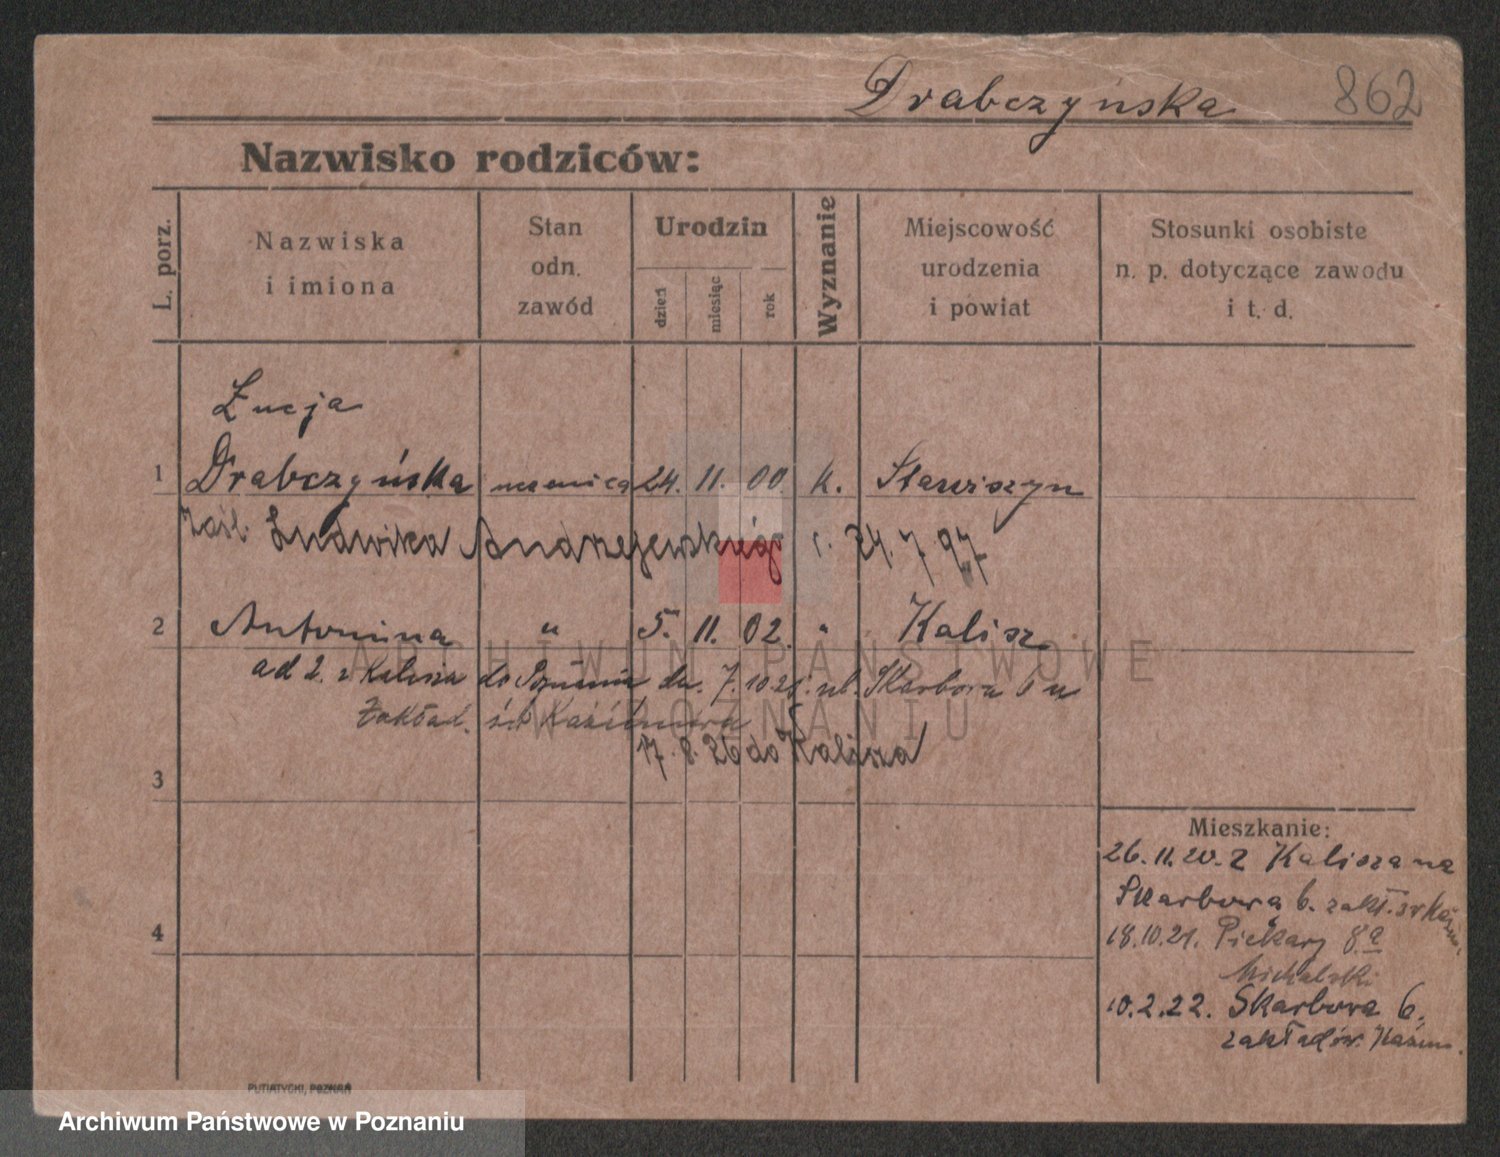 Drabczyńska 862
Nazwisko rodziców:
L. porz.
Nazwiska
i imiona
Stan
odn.
zawód
Urodzin
dzień
miesiąc
rok
Wyznanie
Miejscowość
urodzenia
i powiat
Stosunki osobiste
n. p. dotyczące zawodu
i t. d.
Łucja
1 Drabczyńska 24. 11. 00. k. Stawiszyn
Zaśl. Ludwika Andrzejewskiego r. 24. 7 97
2 Antonina " 5. 11. 02. " Kalisz
ad 2. z Kalisza do Poznania dn. 7.10.21. ul. Skarbowa 6 u
Zakład. św. Kazimierza
17. 8. 26 do Kalisza
3
4
Mieszkanie:
26.11.20. z Kalisza na
Skarbową 6. zakł. św Kazim.
18.10.21. Piekary 8.a
Michalski
10.2.22. Skarbowa 6,
zakład św. Kazim.
PUTIATYCKI, POZNAŃ
ARCHIWUM PAŃSTWOWE
W POZNANIU
Archiwum Państwowe w Poznaniu